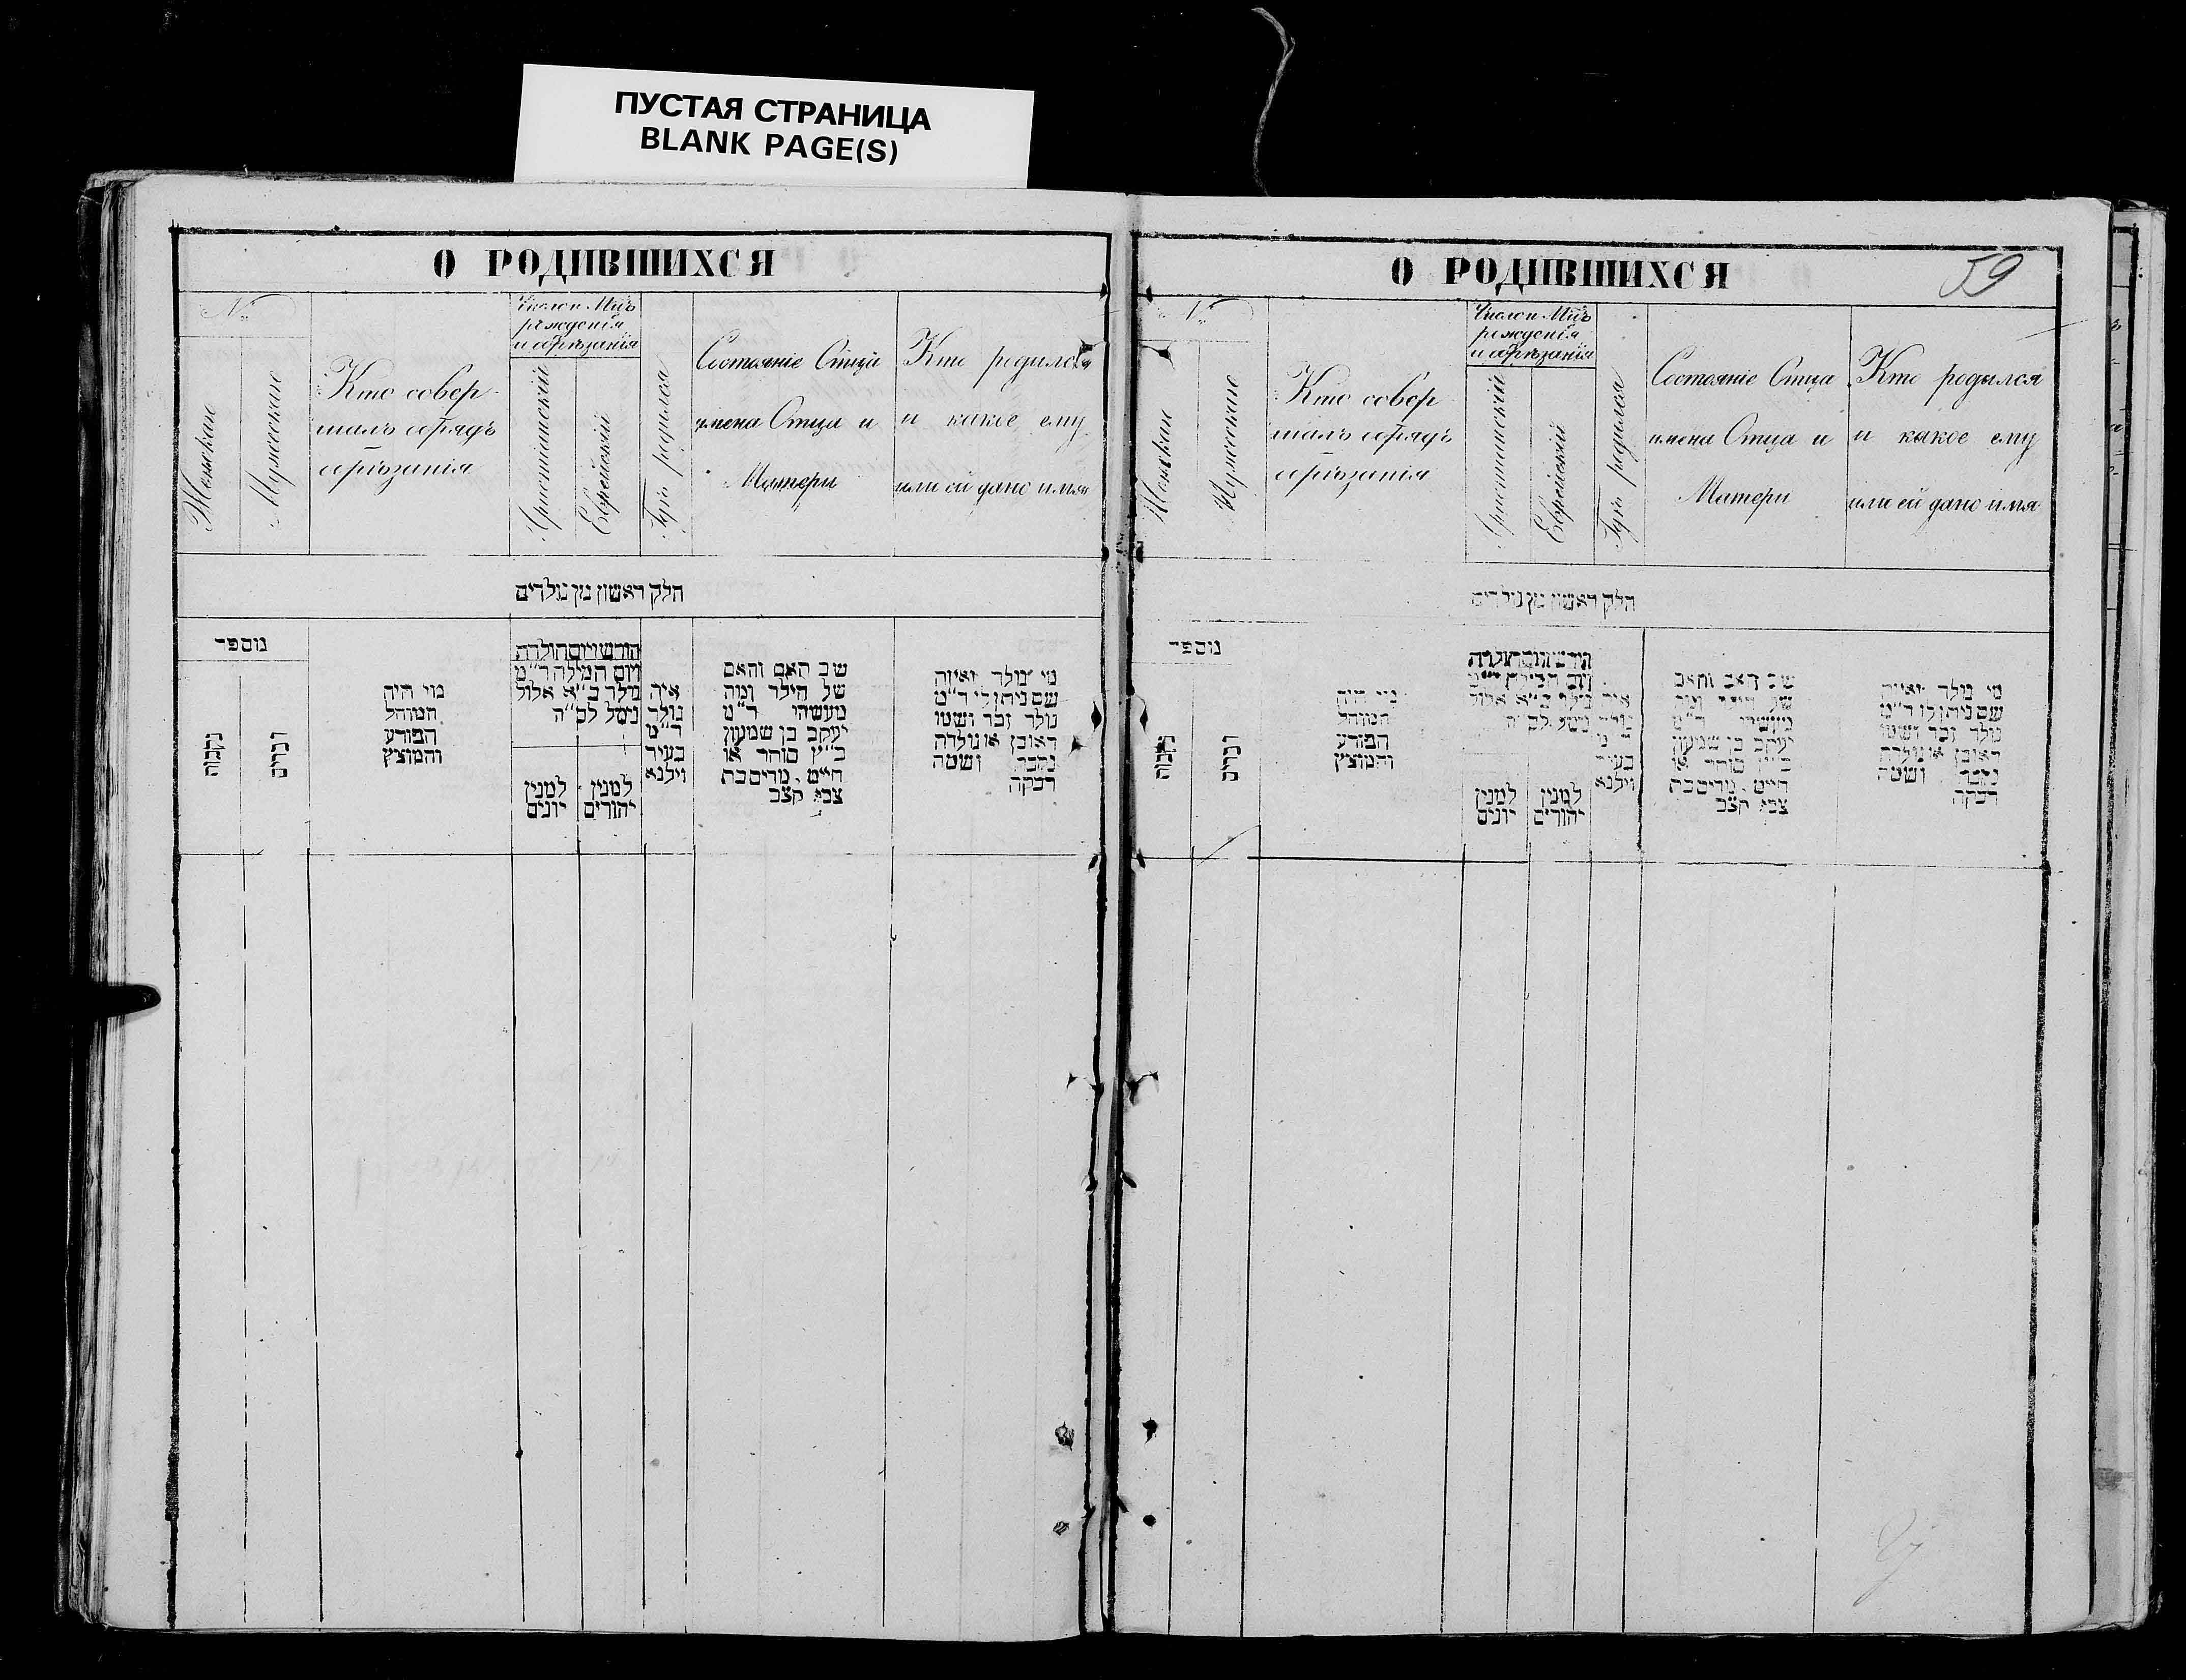 ПУСТАЯ СТРАНИЦА
BLANK PAGE(S)
О РОДИВШИХСЯ
№
Женскаго
Мужескаго
Кто совер-
шалъ обрядъ
обрѣзанія
Число и Мцъ
рожденія
и обрѣзанія
Христіанскій
Еврейскій
Гдѣ родился
Состояніе Отца
имена Отца и
Матери
Кто родился
и какое ему
или ей дано имя
חלק ראשון מן נולדים
מספר
נקבות
זכרים
מי היה
המוהל
הפורע
והמוצץ
חודש ויום הולדת
ויום המילה ד"מ
נולד כ"א אלול
נימל לס"ה
למנין
יונים
למנין
יהודים
איה
נולד
ד"מ
בעיר
ווילנא
שב האם והאם
של הילד ומה
מעשהו ד"מ
יעקב בן שמעון
כ"ץ סוחר או
חייט, מרים בת
צבי קצב
מי נולד ואיזה
שם ניתן לו ד"מ
נולד זכר ושמו
ראובן או נולדת
נקבה ושמה
רבקה
О РОДИВШИХСЯ
59
№
Женскаго
Мужескаго
Кто совер-
шалъ обрядъ
обрѣзанія
Число и Мцъ
рожденія
и обрѣзанія
Христіанскій
Еврейскій
Гдѣ родился
Состояніе Отца
имена Отца и
Матери
Кто родылся
и какое ему
или ей дано имя
חלק ראשון מן נולדים
מספר
נקבות
זכרים
מי היה
המוהל
הפורע
והמוצץ
חודש ויום הולדת
ויום המילה ד"מ
נולד כ"א אלול
נימל לס"ה
למנין
יונים
למנין
יהודים
איה
נולד
ד"מ
בעיר
ווילנא
שב האב והאם
של הילד ומה
מעשהו ד"מ
יעקב בן שמעון
כ"ץ סוחר או
חייט, מרים בת
צבי קצב
מי נולד ואיזה
שם ניתן לו ד"מ
נולד זכר ושמו
ראובן או נולדת
נקבה ושמה
רבקה